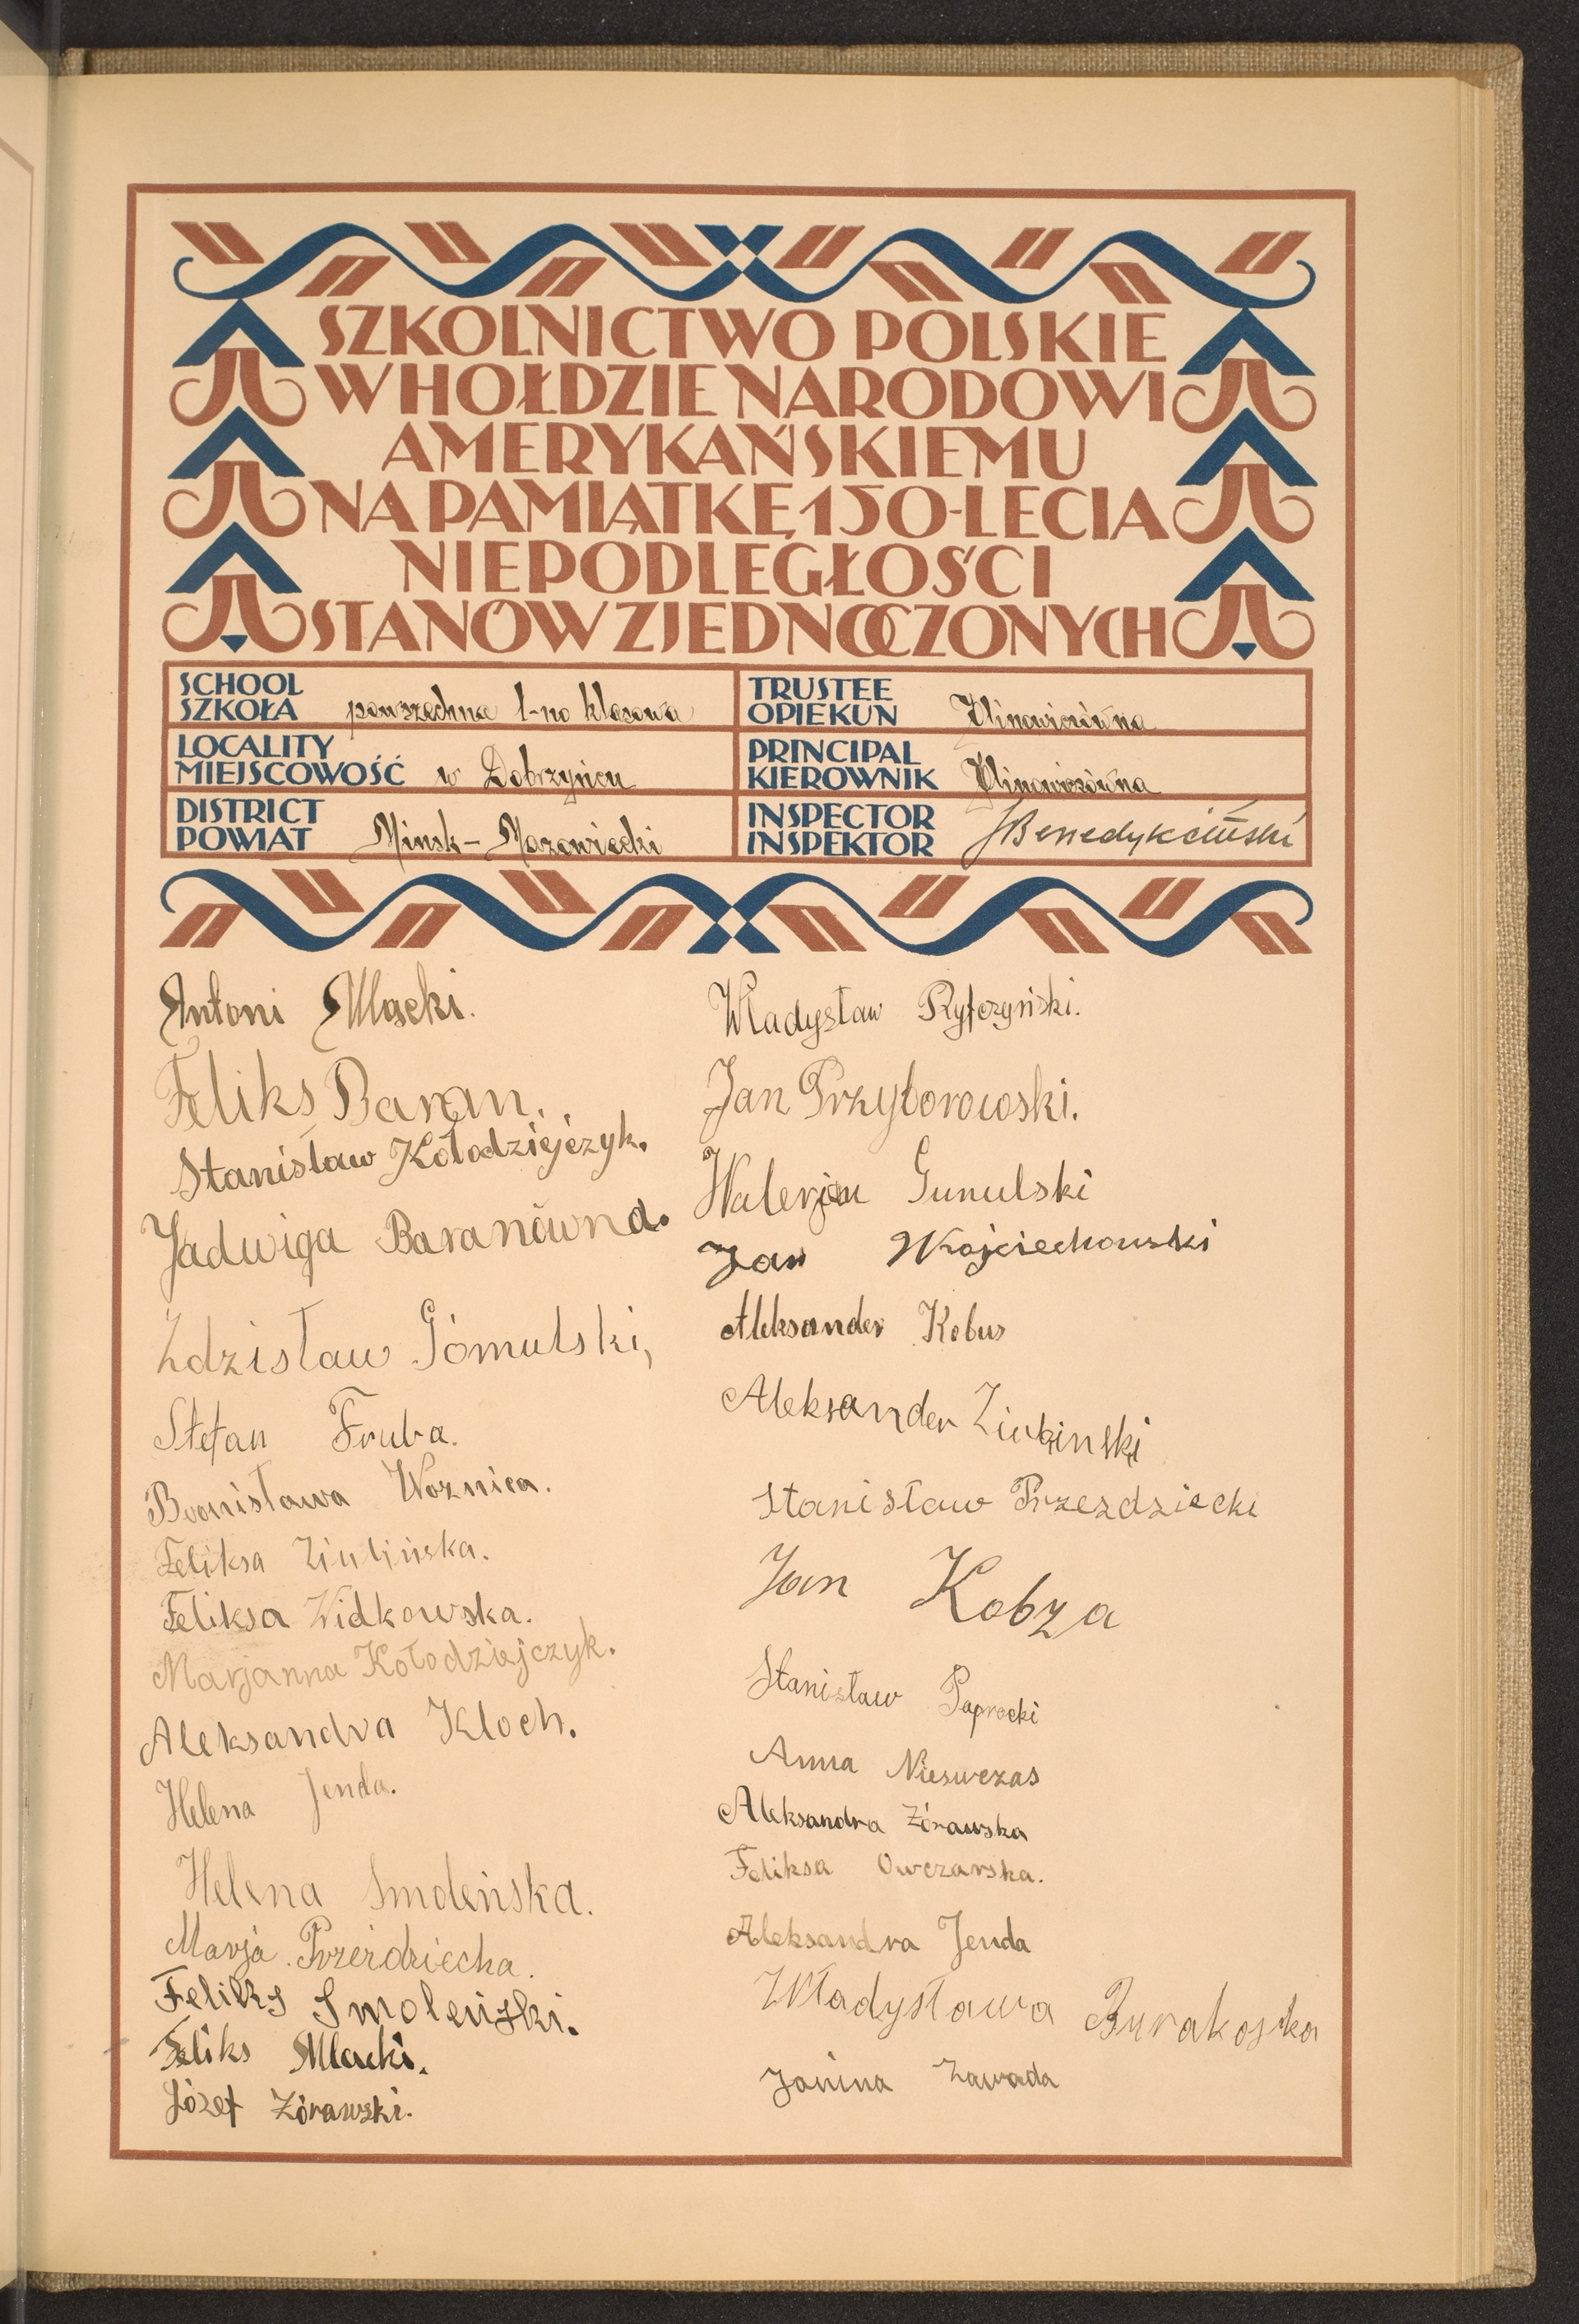 SZKOLNICTWO POLSKIE
W HOŁDZIE NARODOWI
AMERYKAŃSKIEMU
NA PAMIĄTKĘ 150-LECIA
NIEPODLEGŁOŚCI
STANÓW ZJEDNOCZONYCH
SCHOOL
SZKOŁA powszechna 1-no klasowa
TRUSTEE
OPIEKUN Klimowiczówna
LOCALITY
MIEJSCOWOŚĆ w Dobrzyńcu
PRINCIPAL
KIEROWNIK Klimowiczówna
DISTRICT
POWIAT Mińsk-Mazowiecki
INSPECTOR
INSPEKTOR JBenedykciński
Antoni Mlacki.
Feliks Baran.
Stanisław Kołodziejczyk.
Jadwiga Baranówna.
Zdzisław Gómulski,
Stefan Fruba.
Bronisława Woznica.
Feliksa Ziulińska.
Feliksa Widkowska.
Marjanna Kołodziejczyk.
Aleksandra Kloch.
Helena Jenda.
Helena Smoleńska.
Marja Przezdziecka.
Feliks Smoleński.
Feliks Mlacki.
Józef Zórawski.
Władysław Ryfczyński.
Jan Przyborowski.
Walerjan Gunulski
Jan Wojciechowski
Aleksander Kobus
Aleksander Ziubinski
Stanisław Przezdziecki
Jan Kobza
Stanisław Paprocki
Anna Nieswczas
Aleksandra Zórawska
Feliksa Owczarska.
Aleksandra Jenda
Władysława Burakoska
Janina Zawada